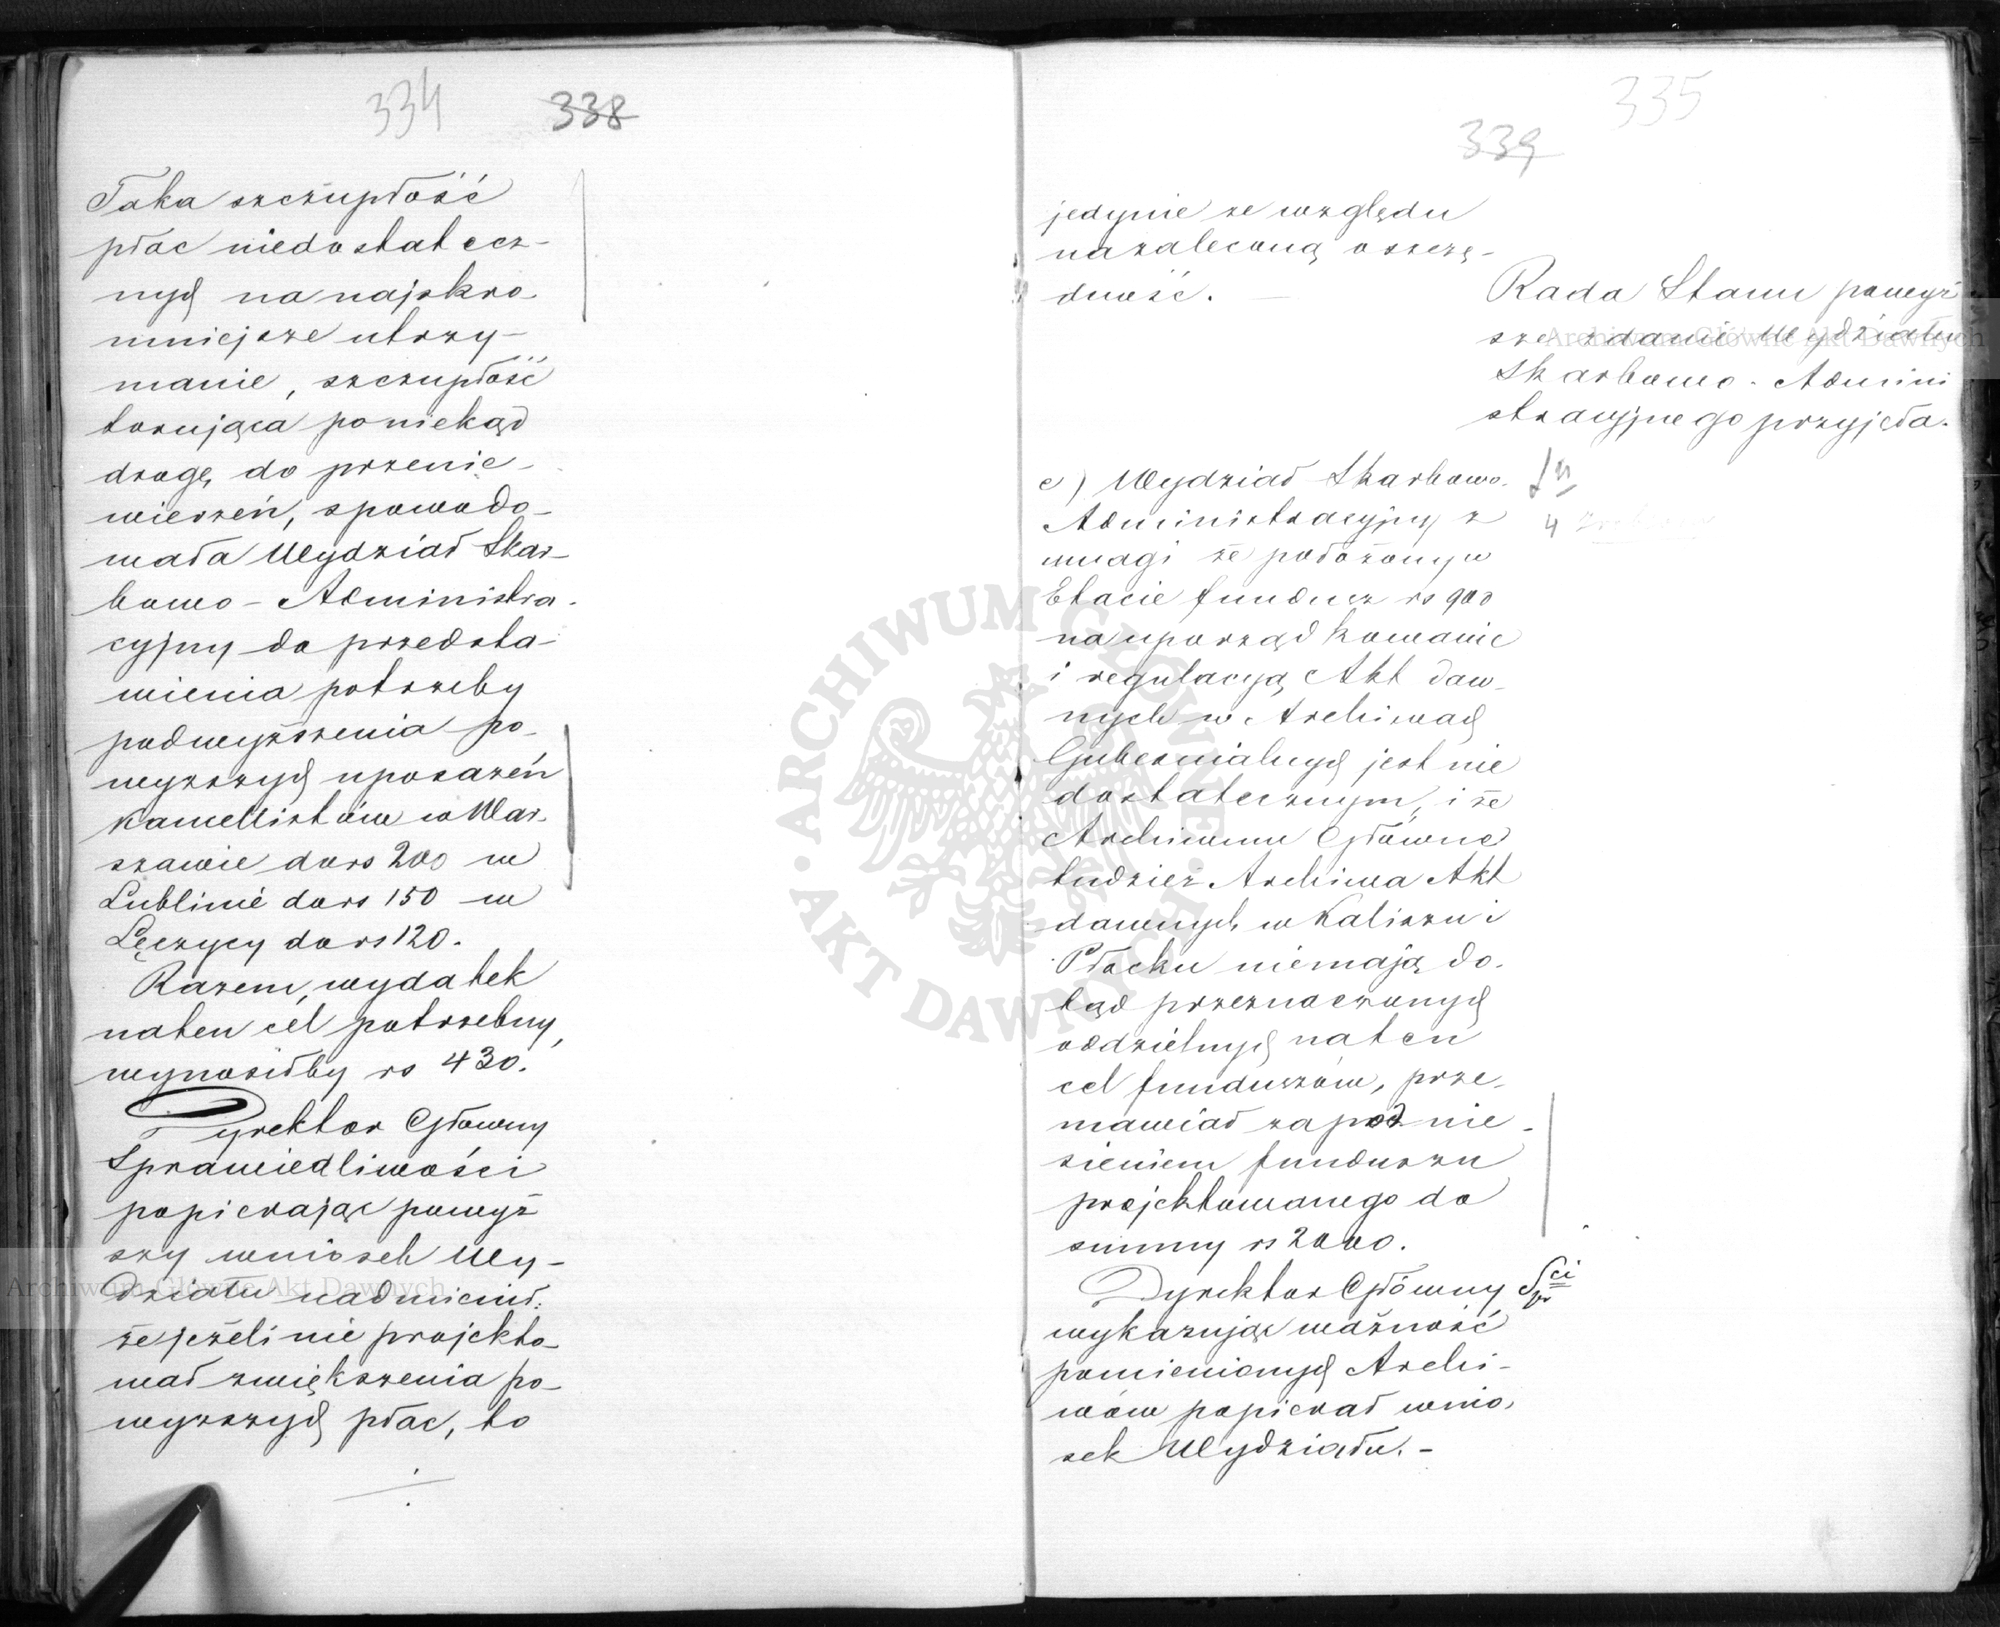 334 338
Taka szczupłość
płac niedostatecz-
nych na najskro-
mniejsze utrzy-
manie, szczupłość
torująca poniekąd
drogę do przenie-
wierzeń, spowodo-
wała Wydział Skar-
bowo-Administra-
cyjny do przedsta-
wienia potrzeby
podwyższenia po-
wyższych uposażeń
kancellistów w War-
szawie do rs 200 w
Lublinie do rs 150 w
Łęczycy do rs 120.
Razem, wydatek
na ten cel potrzebny,
wynosiłby rs 430.
Dyrektor Główny
Sprawiedliwości
popierając powyż
szy wniosek Wy-
działu nadmienił:
że jeżeli nie projekto-
wał zwiększenia po-
wyższych płac, to
335
339
jedynie ze względu
na zaleconą oszczę-
dność. -
Rada Stanu powyż
sze zdanie Wydziału
Skarbowo-Admini
stracyjnego przyjęła.
c) Wydział Skarbowo-
Administracyjny z
uwagi że położony w
Etacie fundusz rs 900
na uporządkowanie
i regulacyą Akt daw-
nych w Archiwach
Gubernialnych jest nie
dostatecznym, i że
Archiwum Główne
tudzież Archiwa Akt
dawnych w Kaliszu i
Płocku niemają do-
tąd przeznaczonych
oddzielnych na ten
cel funduszów, prze-
mawiał za pod nie-
sieniem funduszu
projektowanego do
summy rs 2000.
Dyrektor Główny Spr ci
wykazując ważność
pomienionych Archi-
wów popierał wnio-
sek Wydziału. -
ARCHIWUM GŁÓWNE AKT DAWNYCH
Archiwum Główne Akt Dawnych
Archiwum Główne Akt Dawnych